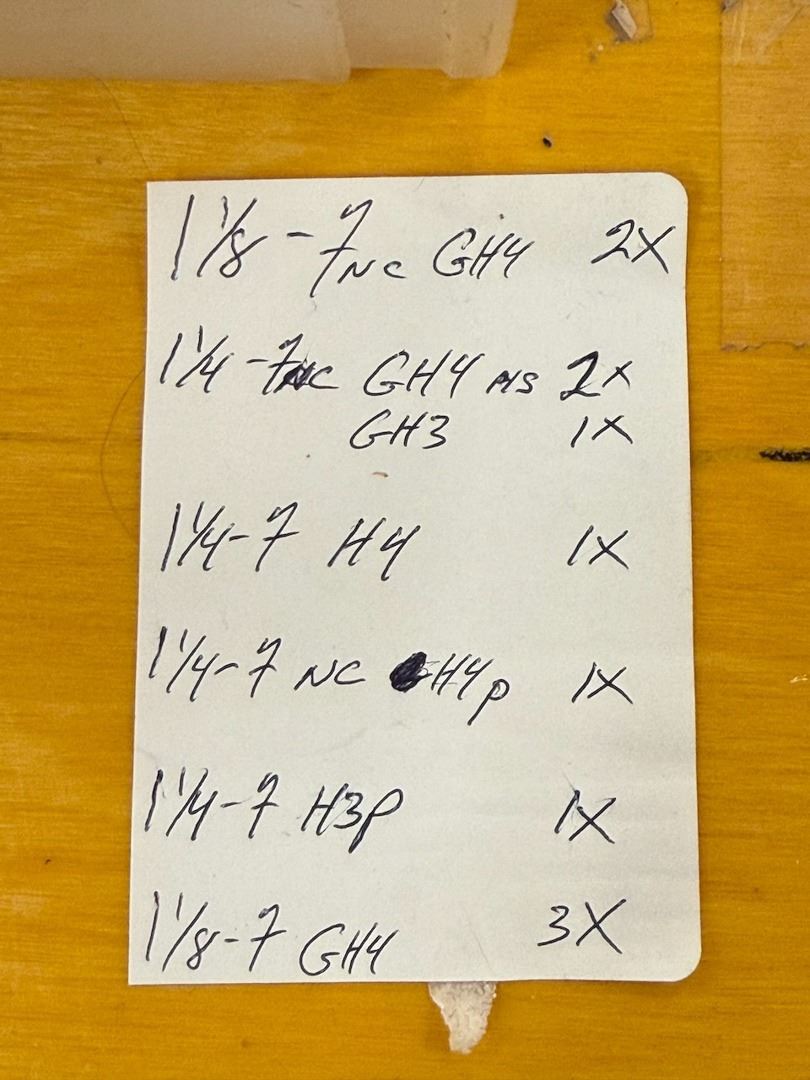 1 1/8 - 7 NC GH4 2X
1 1/4 - 7 NC GH4 HS 2X
GH3 1X
1 1/4 - 7 H4 1X
1 1/4 - 7 NC H4P 1X
1 1/4 - 7 H3P 1X
1 1/8 - 7 GH4 3X